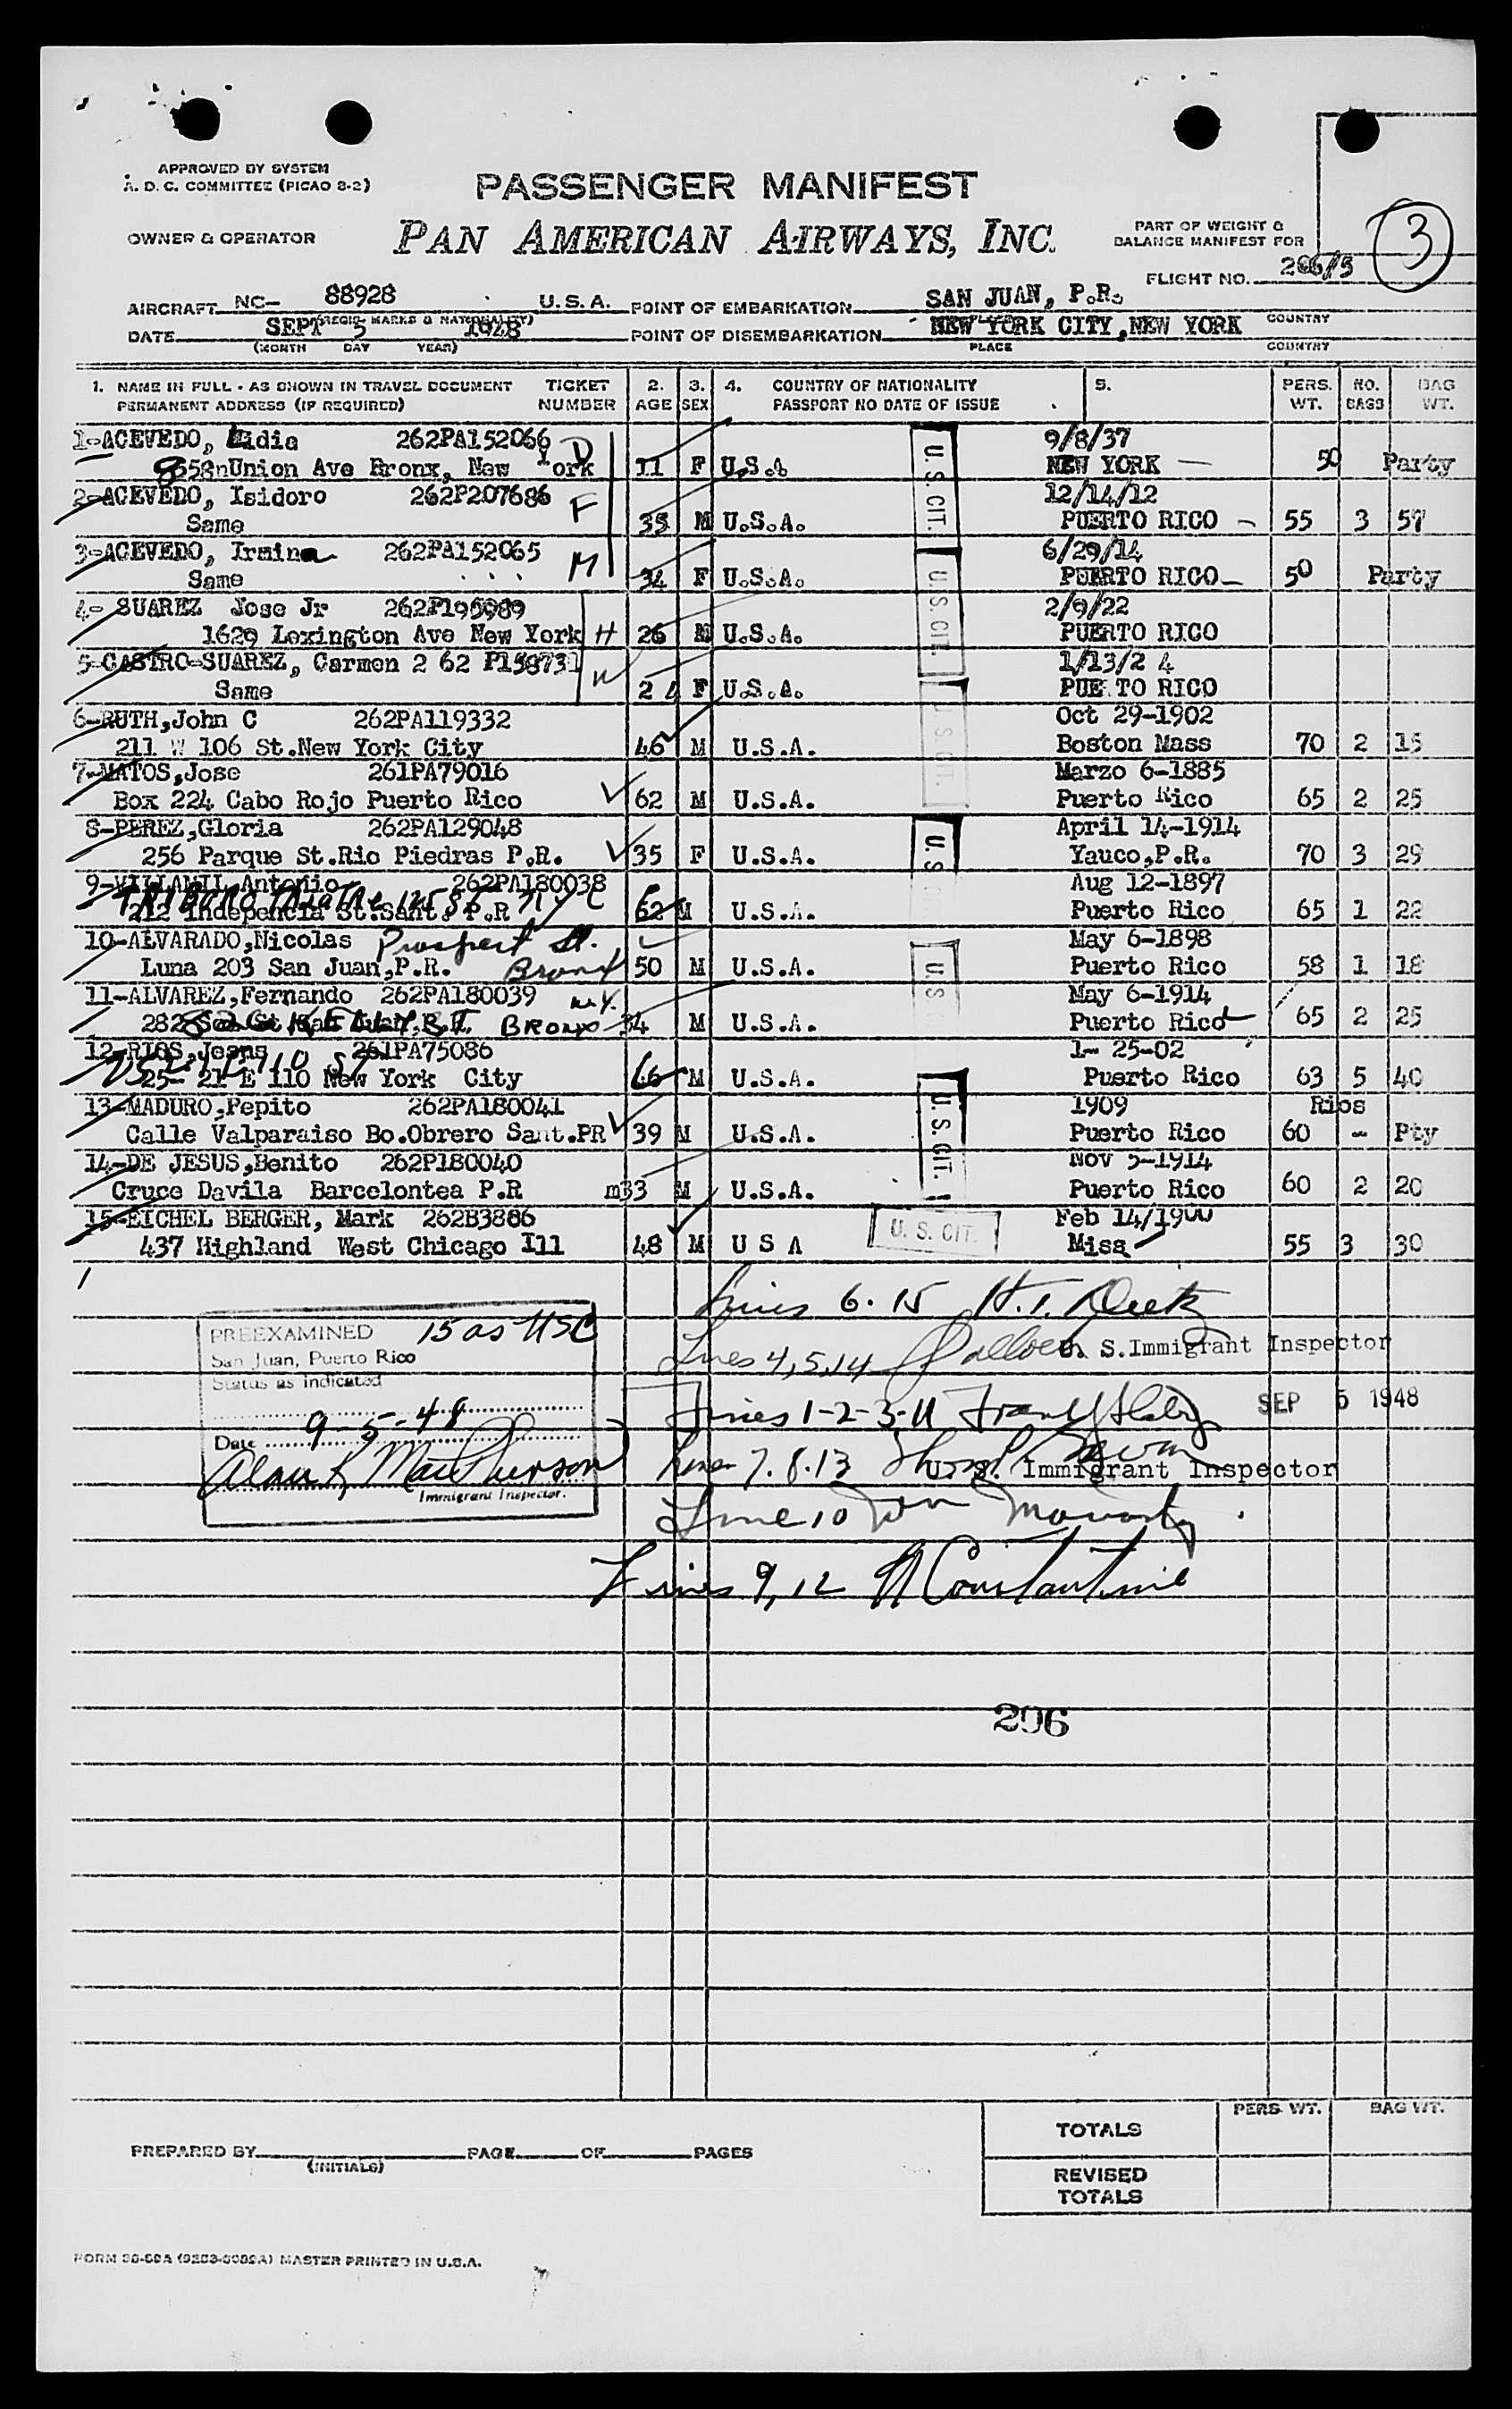 APPROVED BY SYSTEM
A. D. C. COMMITTEE (PICAO 8-2)
PASSENGER MANIFEST
OWNER & OPERATOR
PAN AMERICAN AIRWAYS, INC.
PART OF WEIGHT &
BALANCE MANIFEST FOR
3
FLIGHT NO.
AIRCRAFT NC- 88928 U. S. A. POINT OF EMBARKATION SAN JUAN, P.R.
(REGIS. MARKS & NATIONALITY) COUNTRY
DATE SEPT 5 1948 POINT OF DISEMBARKATION NEW YORK CITY, NEW YORK
(MONTH DAY YEAR) PLACE COUNTRY
1. NAME IN FULL - AS SHOWN IN TRAVEL DOCUMENT TICKET 2. 3. 4. COUNTRY OF NATIONALITY 5. PERS. NO. BAG
PERMANENT ADDRESS (IF REQUIRED) NUMBER AGE SEX PASSPORT NO DATE OF ISSUE WT. BAGS WT.
1-ACEVEDO, Lidia 262PA152066 D 9/8/37
Union Ave Bronx, New York 11 F U.S.A NEW YORK 50 Party
2-ACEVEDO, Isidoro 262P207686 F 12/14/12
Same 35 M U.S.A. PUERTO RICO 55 3 57
3-ACEVEDO, Irmina 262PA152065 M 6/29/14
Same 34 F U.S.A. PUERTO RICO 50 Party
4- SUAREZ Jose Jr 262P195989 2/9/22
1629 Lexington Ave New York H 26 M U.S.A. PUERTO RICO
5-CASTRO-SUAREZ, Carmen 2 62 P158731 W 1/13/2 4
Same 2 4 F U.S.A. PUE TO RICO
6-RUTH,John C 262PA119332 Oct 29-1902
211 W 106 St.New York City 46 M U.S.A. Boston Mass 70 2 15
7-MATOS,Jose 261PA79016 Marzo 6-1885
Box 224 Cabo Rojo Puerto Rico 62 M U.S.A. Puerto Rico 65 2 25
8-PEREZ,Gloria 262PA129048 April 14-1914
256 Parque St.Rio Piedras P.R. 35 F U.S.A. Yauco,P.R. 70 3 29
9-VILLAMIL,Antonio 262PA180038 Aug 12-1897
212 Indepencia St.Sant. P.R 62 M U.S.A. Puerto Rico 65 1 22
10-ALVARADO,Nicolas Prospect St. May 6-1898
Luna 203 San Juan,P.R. Bronx 50 M U.S.A. Puerto Rico 58 1 18
11-ALVAREZ,Fernando 262PA180039 N.Y. May 6-1914
282 BRONX 34 M U.S.A. Puerto Rico 65 2 25
12-RIOS,Jesus 261PA75086 1- 25-02
25- 21 E 110 New York City 46 M U.S.A. Puerto Rico 63 5 40
13-MADURO,Pepito 262PA180041 1909 Rios
Calle Valparaiso Bo.Obrero Sant.PR 39 M U.S.A. Puerto Rico 60 - Pty
14-DE JESUS,Benito 262P180040 Nov 5-1914
Cruce Davila Barcelontea P.R m33 M U.S.A. Puerto Rico 60 2 20
15-EICHEL BERGER, Mark 262B3886 Feb 14/1900
437 Highland West Chicago Ill 48 M U S A Miss 55 3 30
U.S. CIT.
U.S. CIT.
U.S. CIT.
U. S. CIT.
Lines 6. 15
PREEXAMINED 15 as USC
San Juan, Puerto Rico
Status as indicated
Lines 4, 5, 14 U. S. Immigrant Inspector
Lines 1-2-3-11 SEP 5 1948
Date 9-5-48
Immigrant Inspector.
Lines 7. 8. 13
U. S. Immigrant Inspector
Line 10
Lines 9, 12 N Constantine
296
TOTALS PERS WT. BAG WT.
REVISED
TOTALS
PREPARED BY PAGE OF PAGES
(INITIALS)
MASTER PRINTED IN U.S.A.